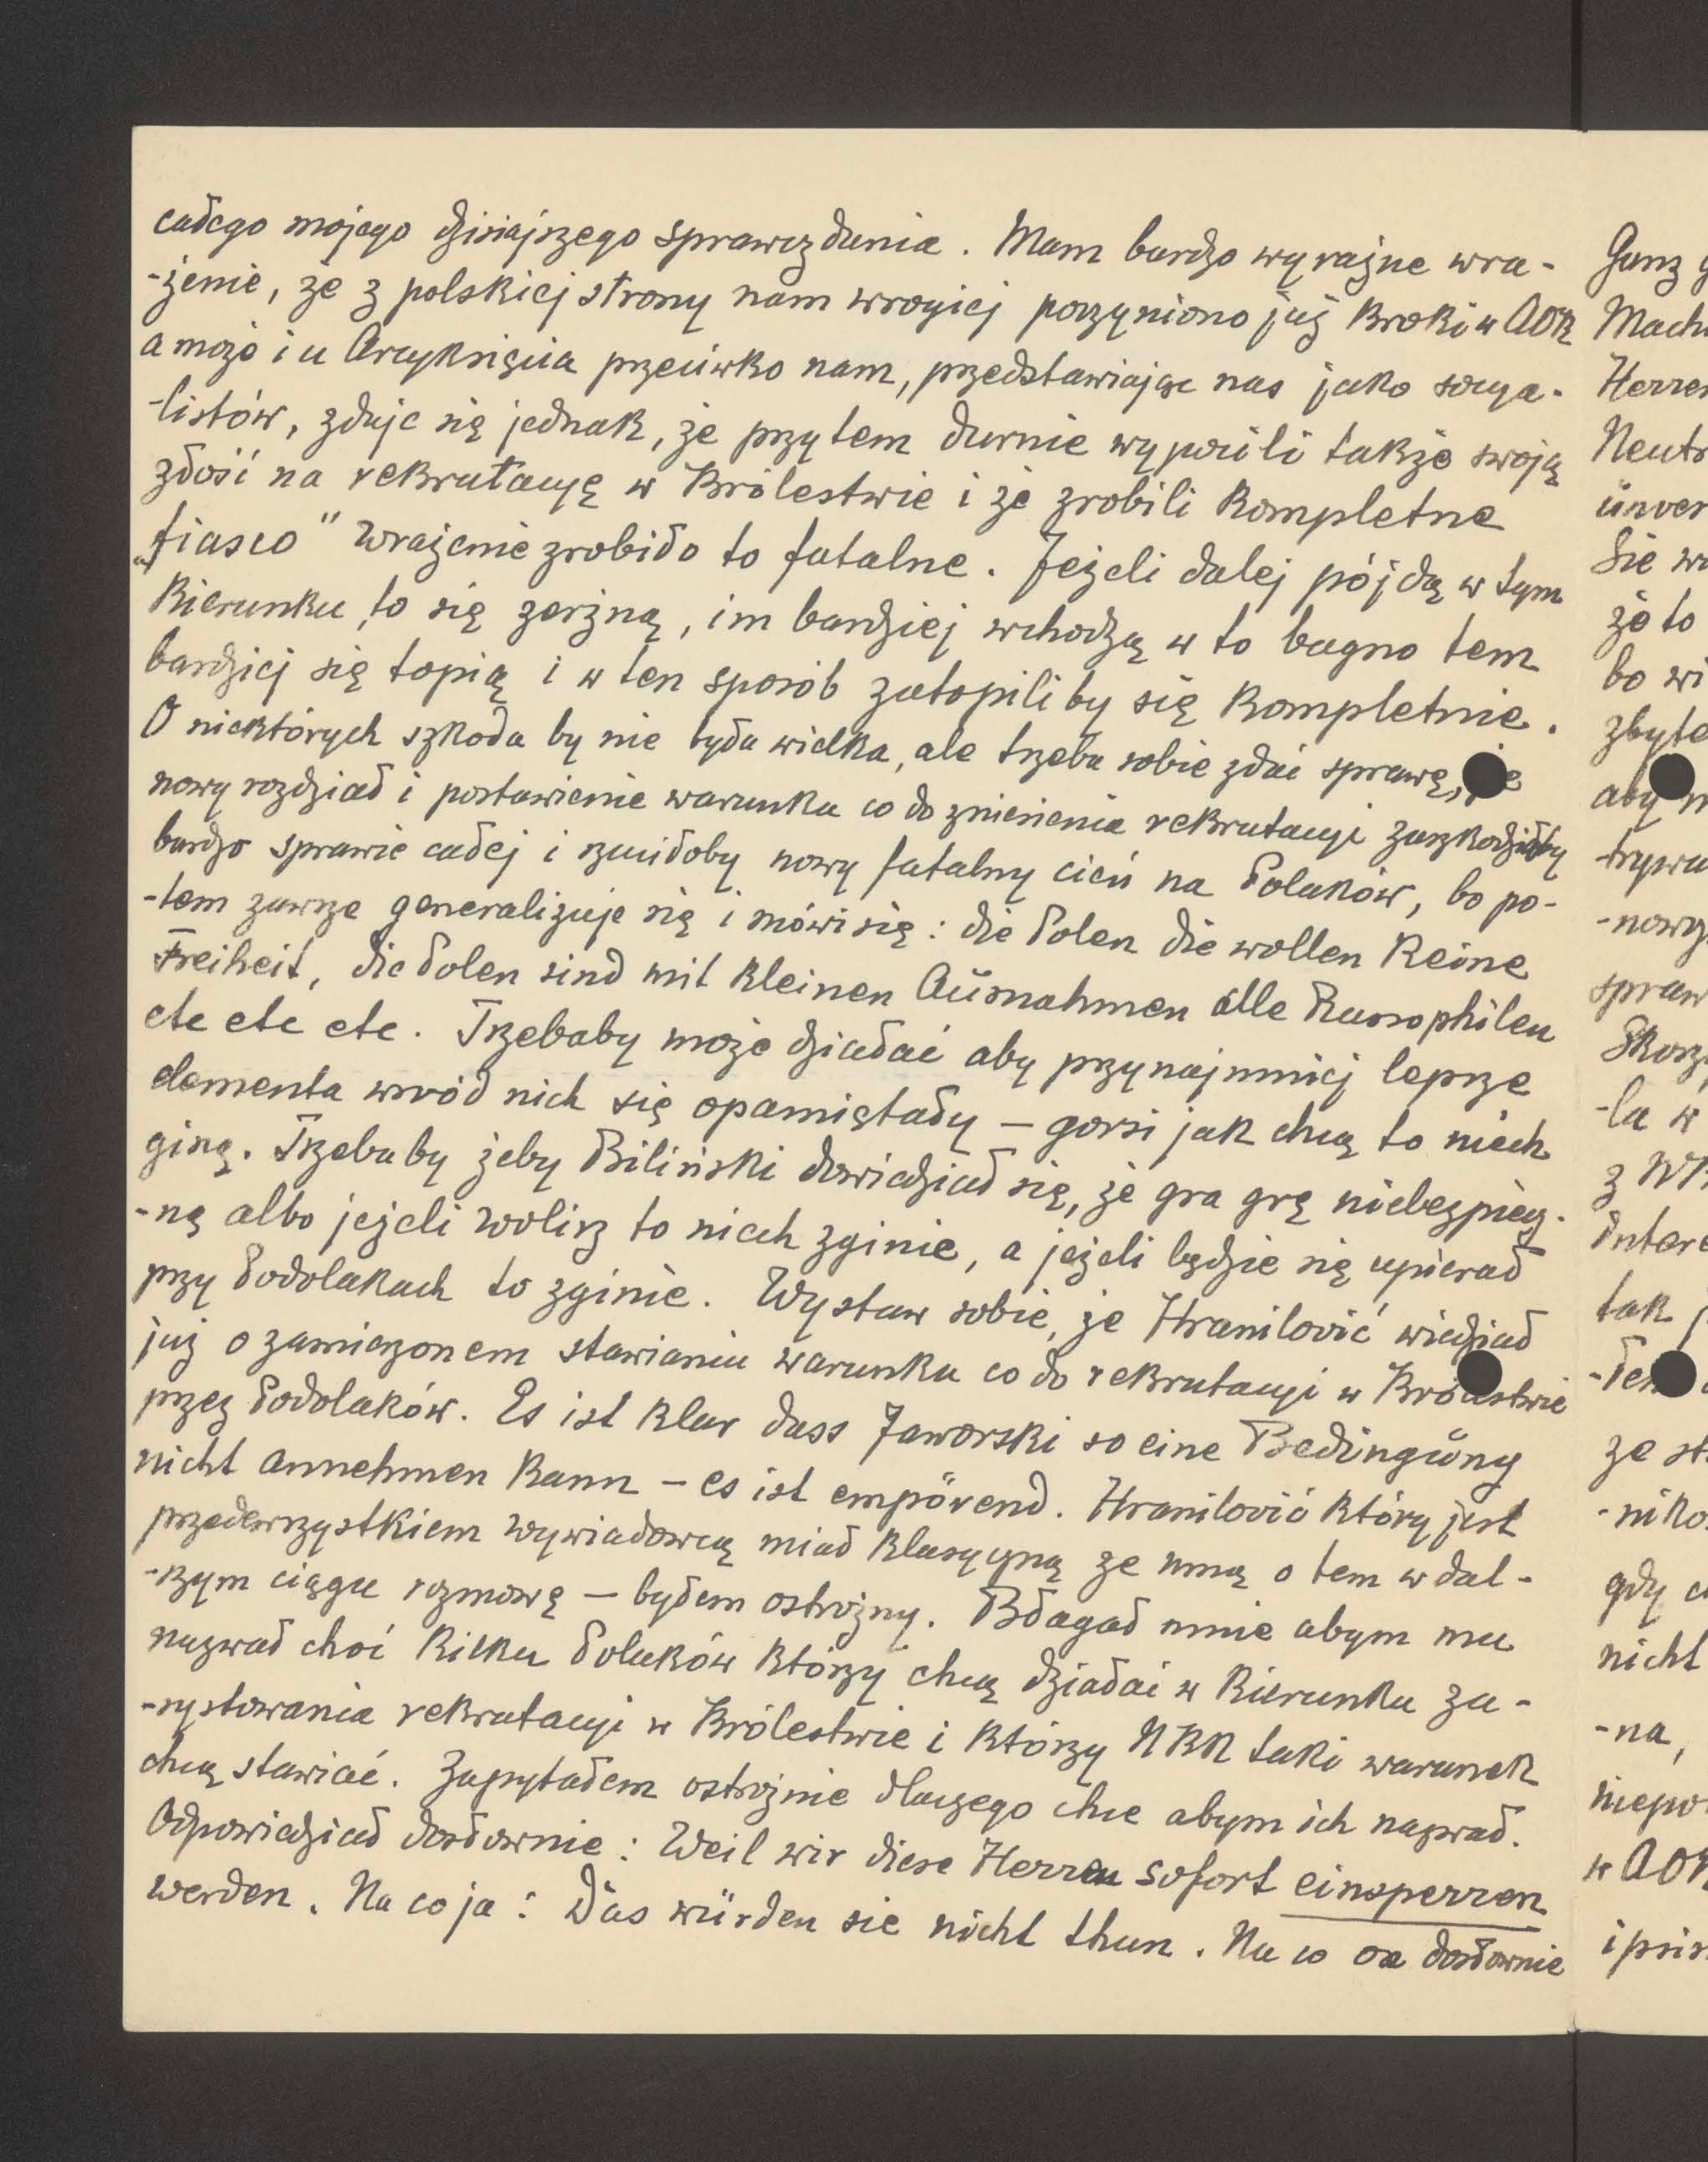 całego mojego dzisiajszego sprawozdania. Mam bardzo wyraźne wra-
-żenie, że z polskiej strony nam wrogiej poczyniono już kroki w AOK
a może i u Arcyksięcia przeciwko nam, przedstawiając nas jako socya-
-listów, zdaje się jednak, że przytem durnie wypocili także swoją
złość na rekrutacyę w Królestwie i że zrobili kompletne
„fiasco" Wrażenie zrobiło to fatalne. Jeżeli dalej pójdą w tym
kierunku to się zerżną, im bardziej wchodzą w to bagno tem
bardziej się topią i w ten sposób zatopiliby się kompletnie.
O niektórych szkoda by nie była wielka, ale trzeba sobie zdać sprawę, że
nowy rozdział i postawienie warunku co do zniesienia rekrutacyi zaszkodziłby
bardzo sprawie całej i rzuciłoby nowy fatalny cień na Polaków, bo po-
-tem zawsze generalizuje się i mówi się: die Polen die wollen keine
Freiheit, die Polen sind mit kleinen Ausnahmen alle Russophilen
etc etc etc. Trzebaby może działać aby przynajmniej lepsze
elementa wśród nich się opamiętały – gorsi jak chcą to niech
giną. Trzebaby żeby Biliński dowiedział się, że gra grę niebezpiecz-
-ną albo jeżeli wolisz to niech zginie, a jeżeli będzie się upierał
przy Podolakach to zginie. Wystaw sobie, że Hranilović wiedział
już o zamierzonem stawianiu warunku co do rekrutacyi w Królestwie
przez Podolaków. Es ist klar dass Jaworski so eine Bedingung
nicht annehmen kann – es ist empörend. Hranilović który jest
przedewszystkiem wywiadowcą miał klasyczną ze mną o tem w dal-
-szym ciągu rozmowę – byłem ostrożny. Błagał mnie abym mu
nazwał choć kilku Polaków którzy chcą działać w kierunku za-
-systowania rekrutacyi w Królestwie i którzy NKN taki warunek
chcą stawiać. Zapytałem ostrożnie dlaczego chce abym ich nazwał.
Odpowiedział dosłownie: Weil wir diese Herren sofort einsperren
werden. Na co ja: Das würden sie nicht thun. Na co on dosłownie